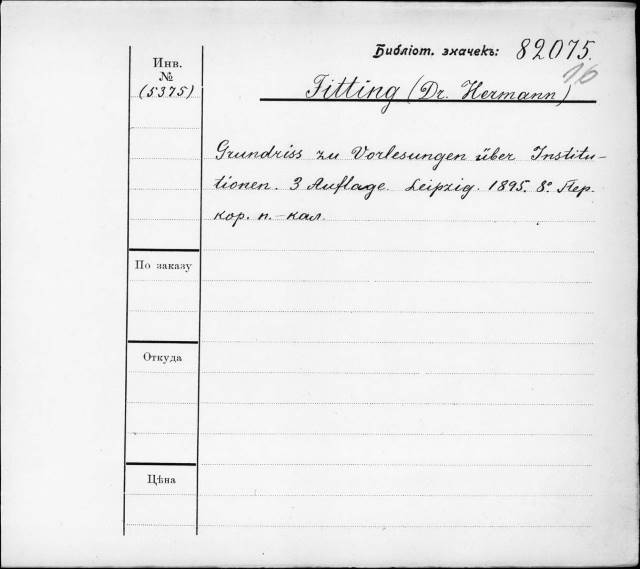 Библіот. значекъ: 82075.
16
Инв.
№
(5375)
Fitting (Dr. Hermann)
Grundriss zu Vorlesungen über Institu-
tionen. 3 Auflage. Leipzig. 1895. 8º. Пер.
кор. п.-кал.
По заказу
Откуда
Цѣна